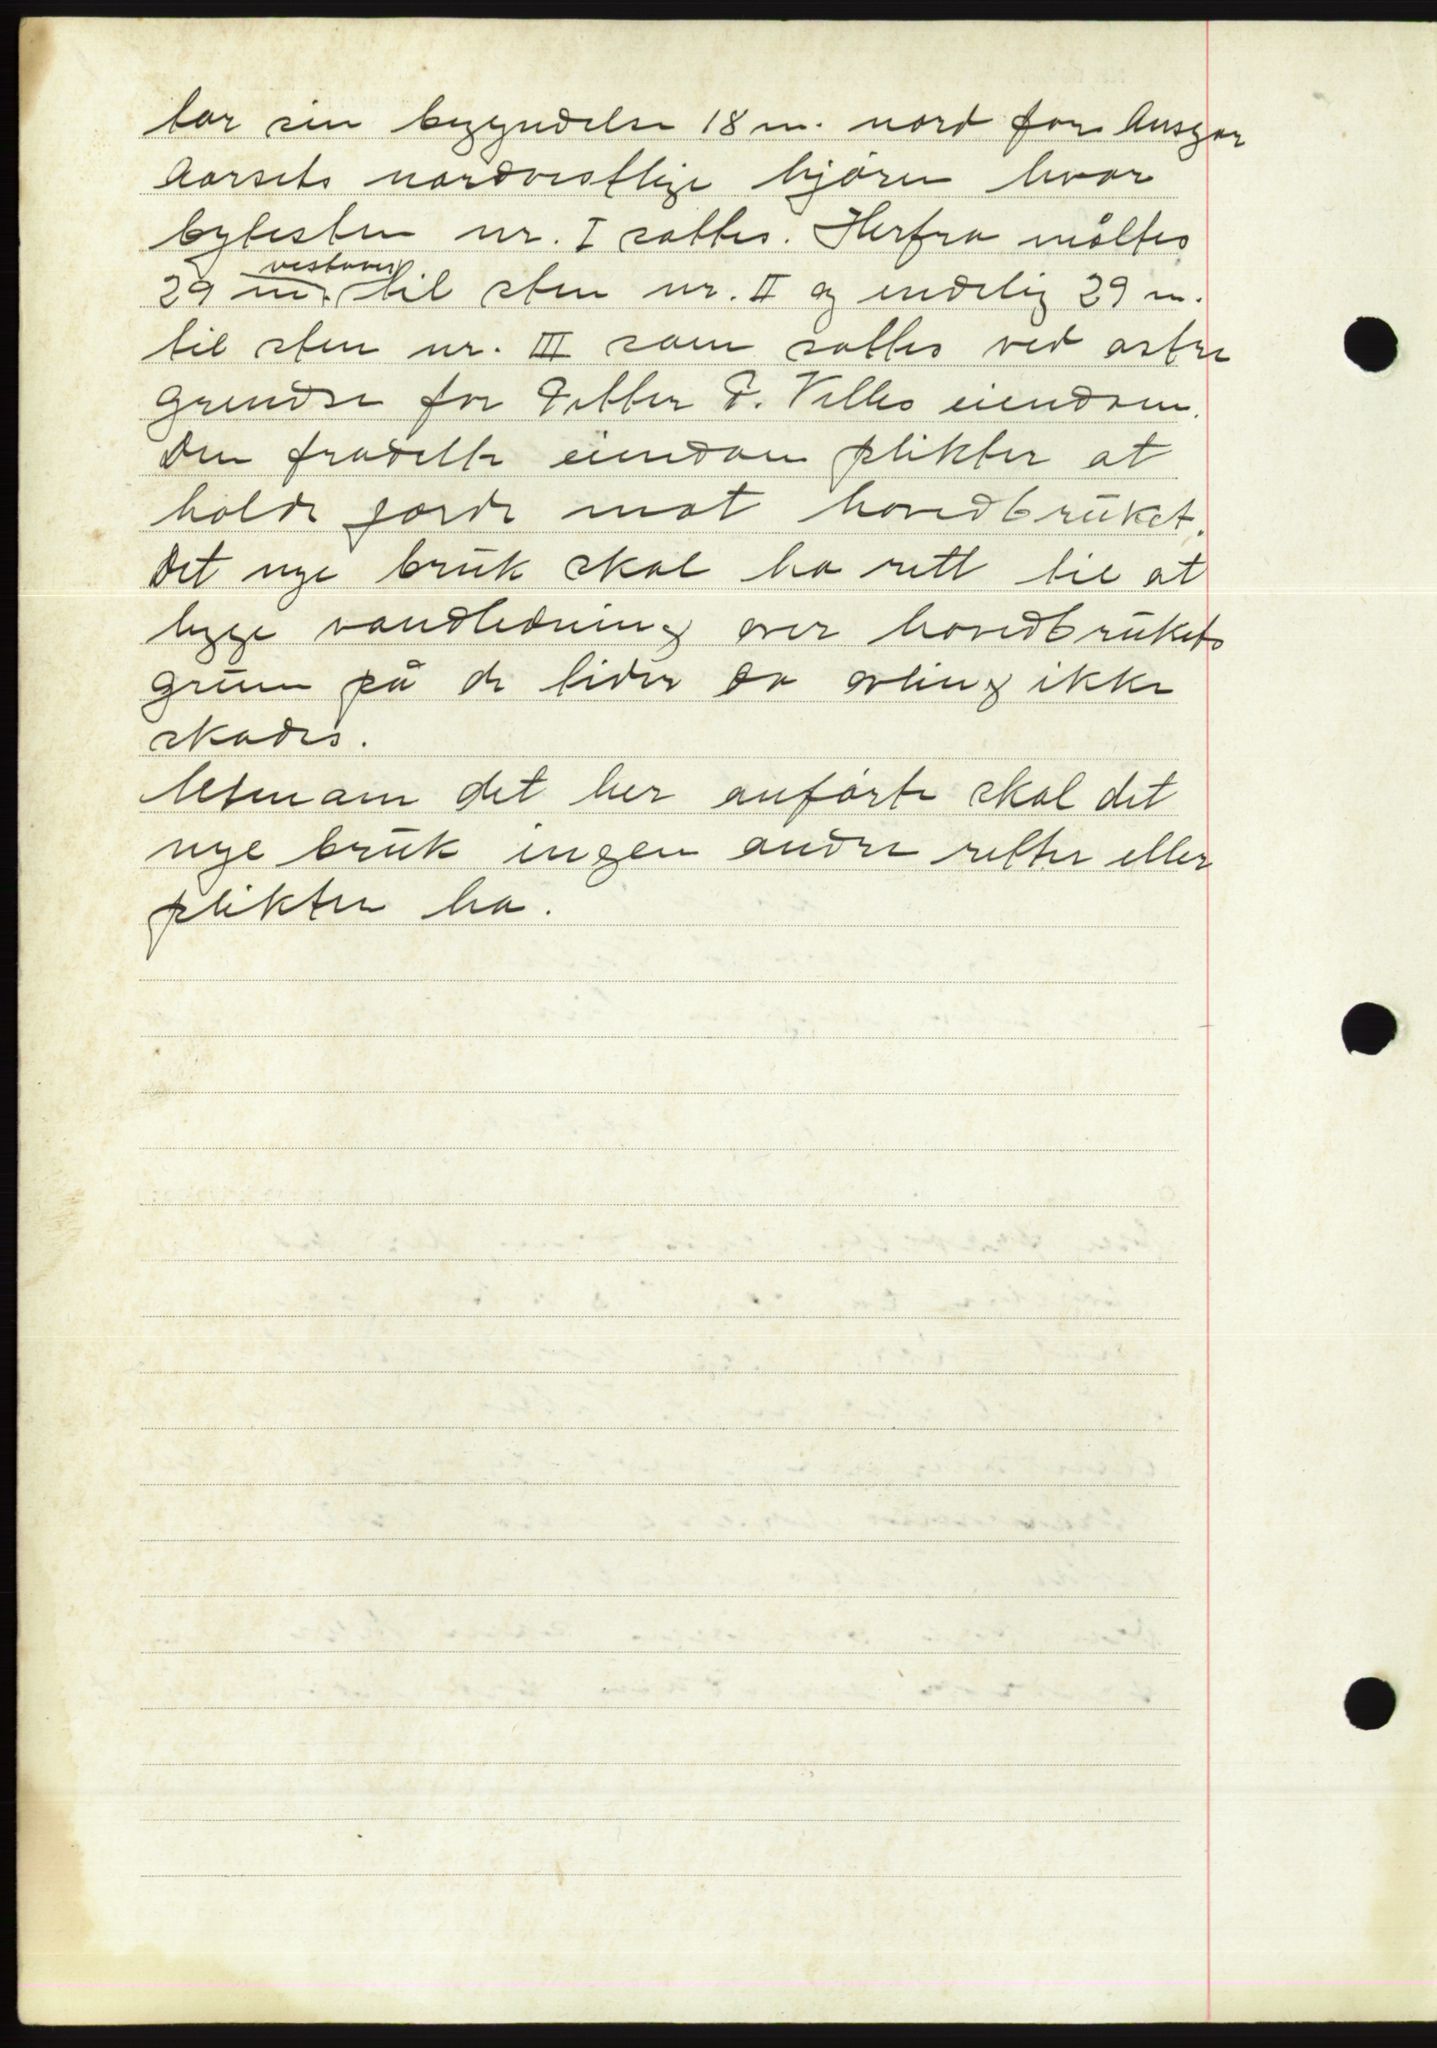 tar sin begyndelse 18 m. nord for Ansgar
Aarsets nordvestlige hjörne hvor
bytesten nr. I sattes. Herfra måltes
29 m. vestover til sten nr. II og endelig 29 m.
til sten nr. III som sattes ved østre
grendse for Petter P. Velles eiendom.
Den fradelte eiendom plikter at
holde gjerde mot hovedbrüket.
Det nye brük skal ha rett til at
legge vandledning over hovedbrükets
grünn på de tider da avling ikke
skades.
Utenom det her anförte skal det
nye brük ingen andre retter eller
plikter ha.